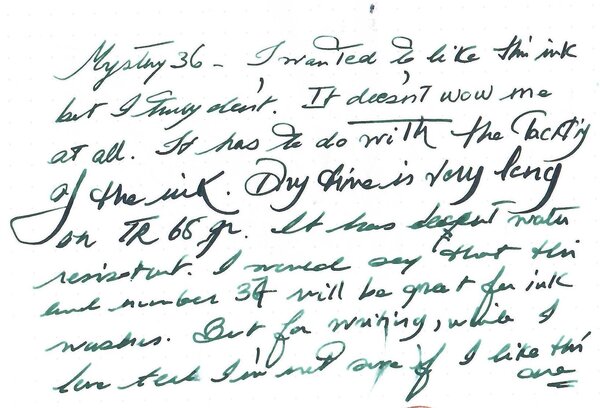 Mystery 36 - I wanted to like this ink
but I truly don't. It doesn't wow me
at all. It has to do with the
of the ink. Dry time is very long
on TR 68 gr. It has decent water
resistant. I would say that this
and number 34 will be great for ink
washes. But for writing, while I
love teal I'm not sure if I like this
one